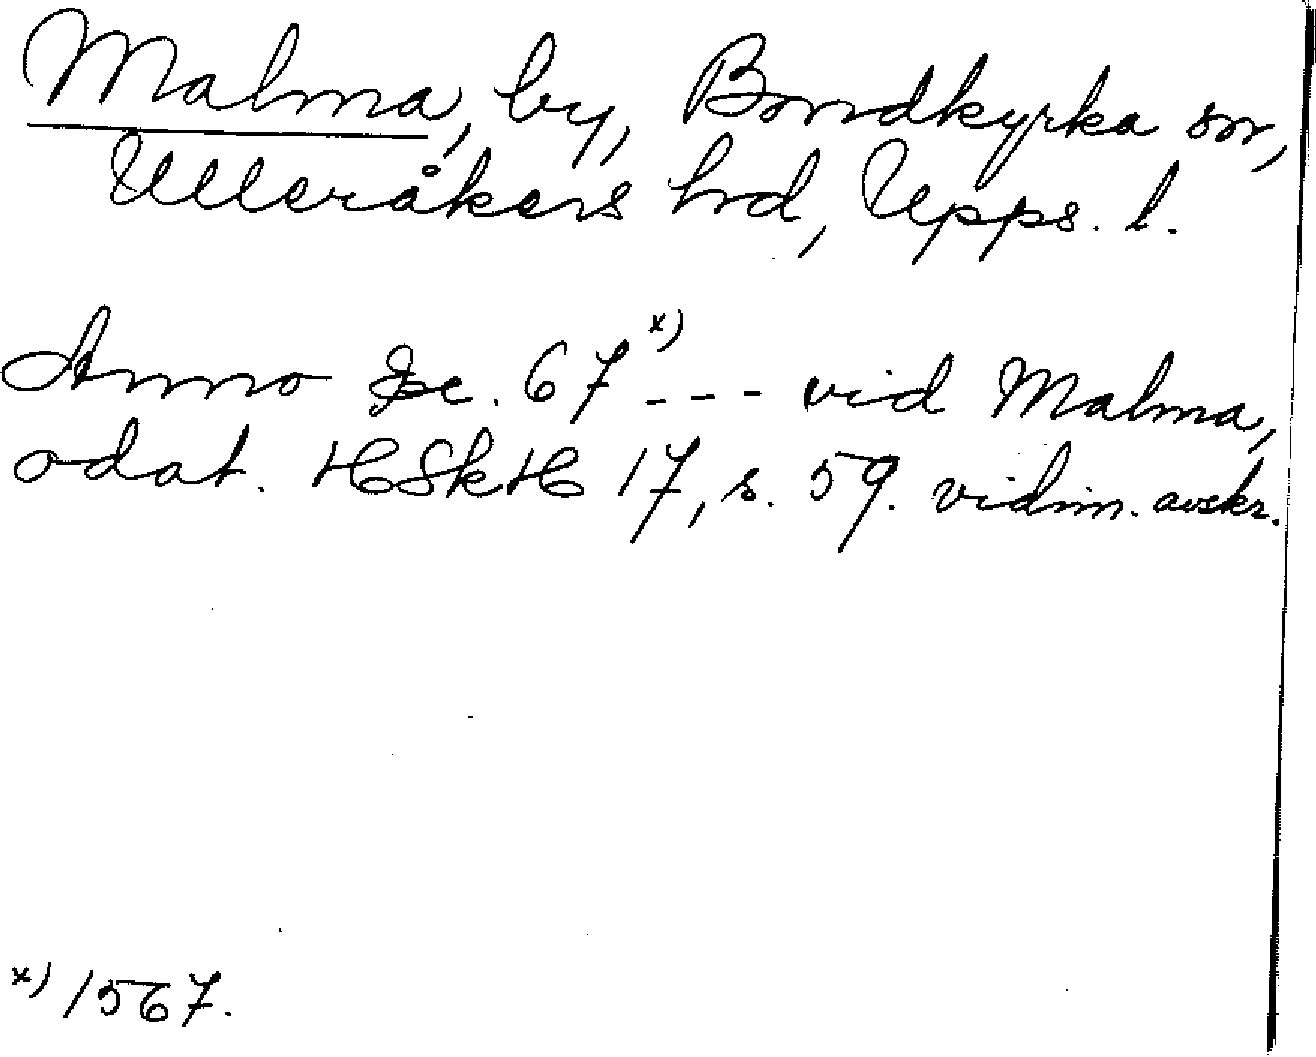 Malma, by, Bondkyrka sn,
Ulleråkers hd, Upps. l.
Anno &c. 67 x) - - - vid Malma,
odat. HSkH 17, s. 59. vidim. avskr.
x) 1567.